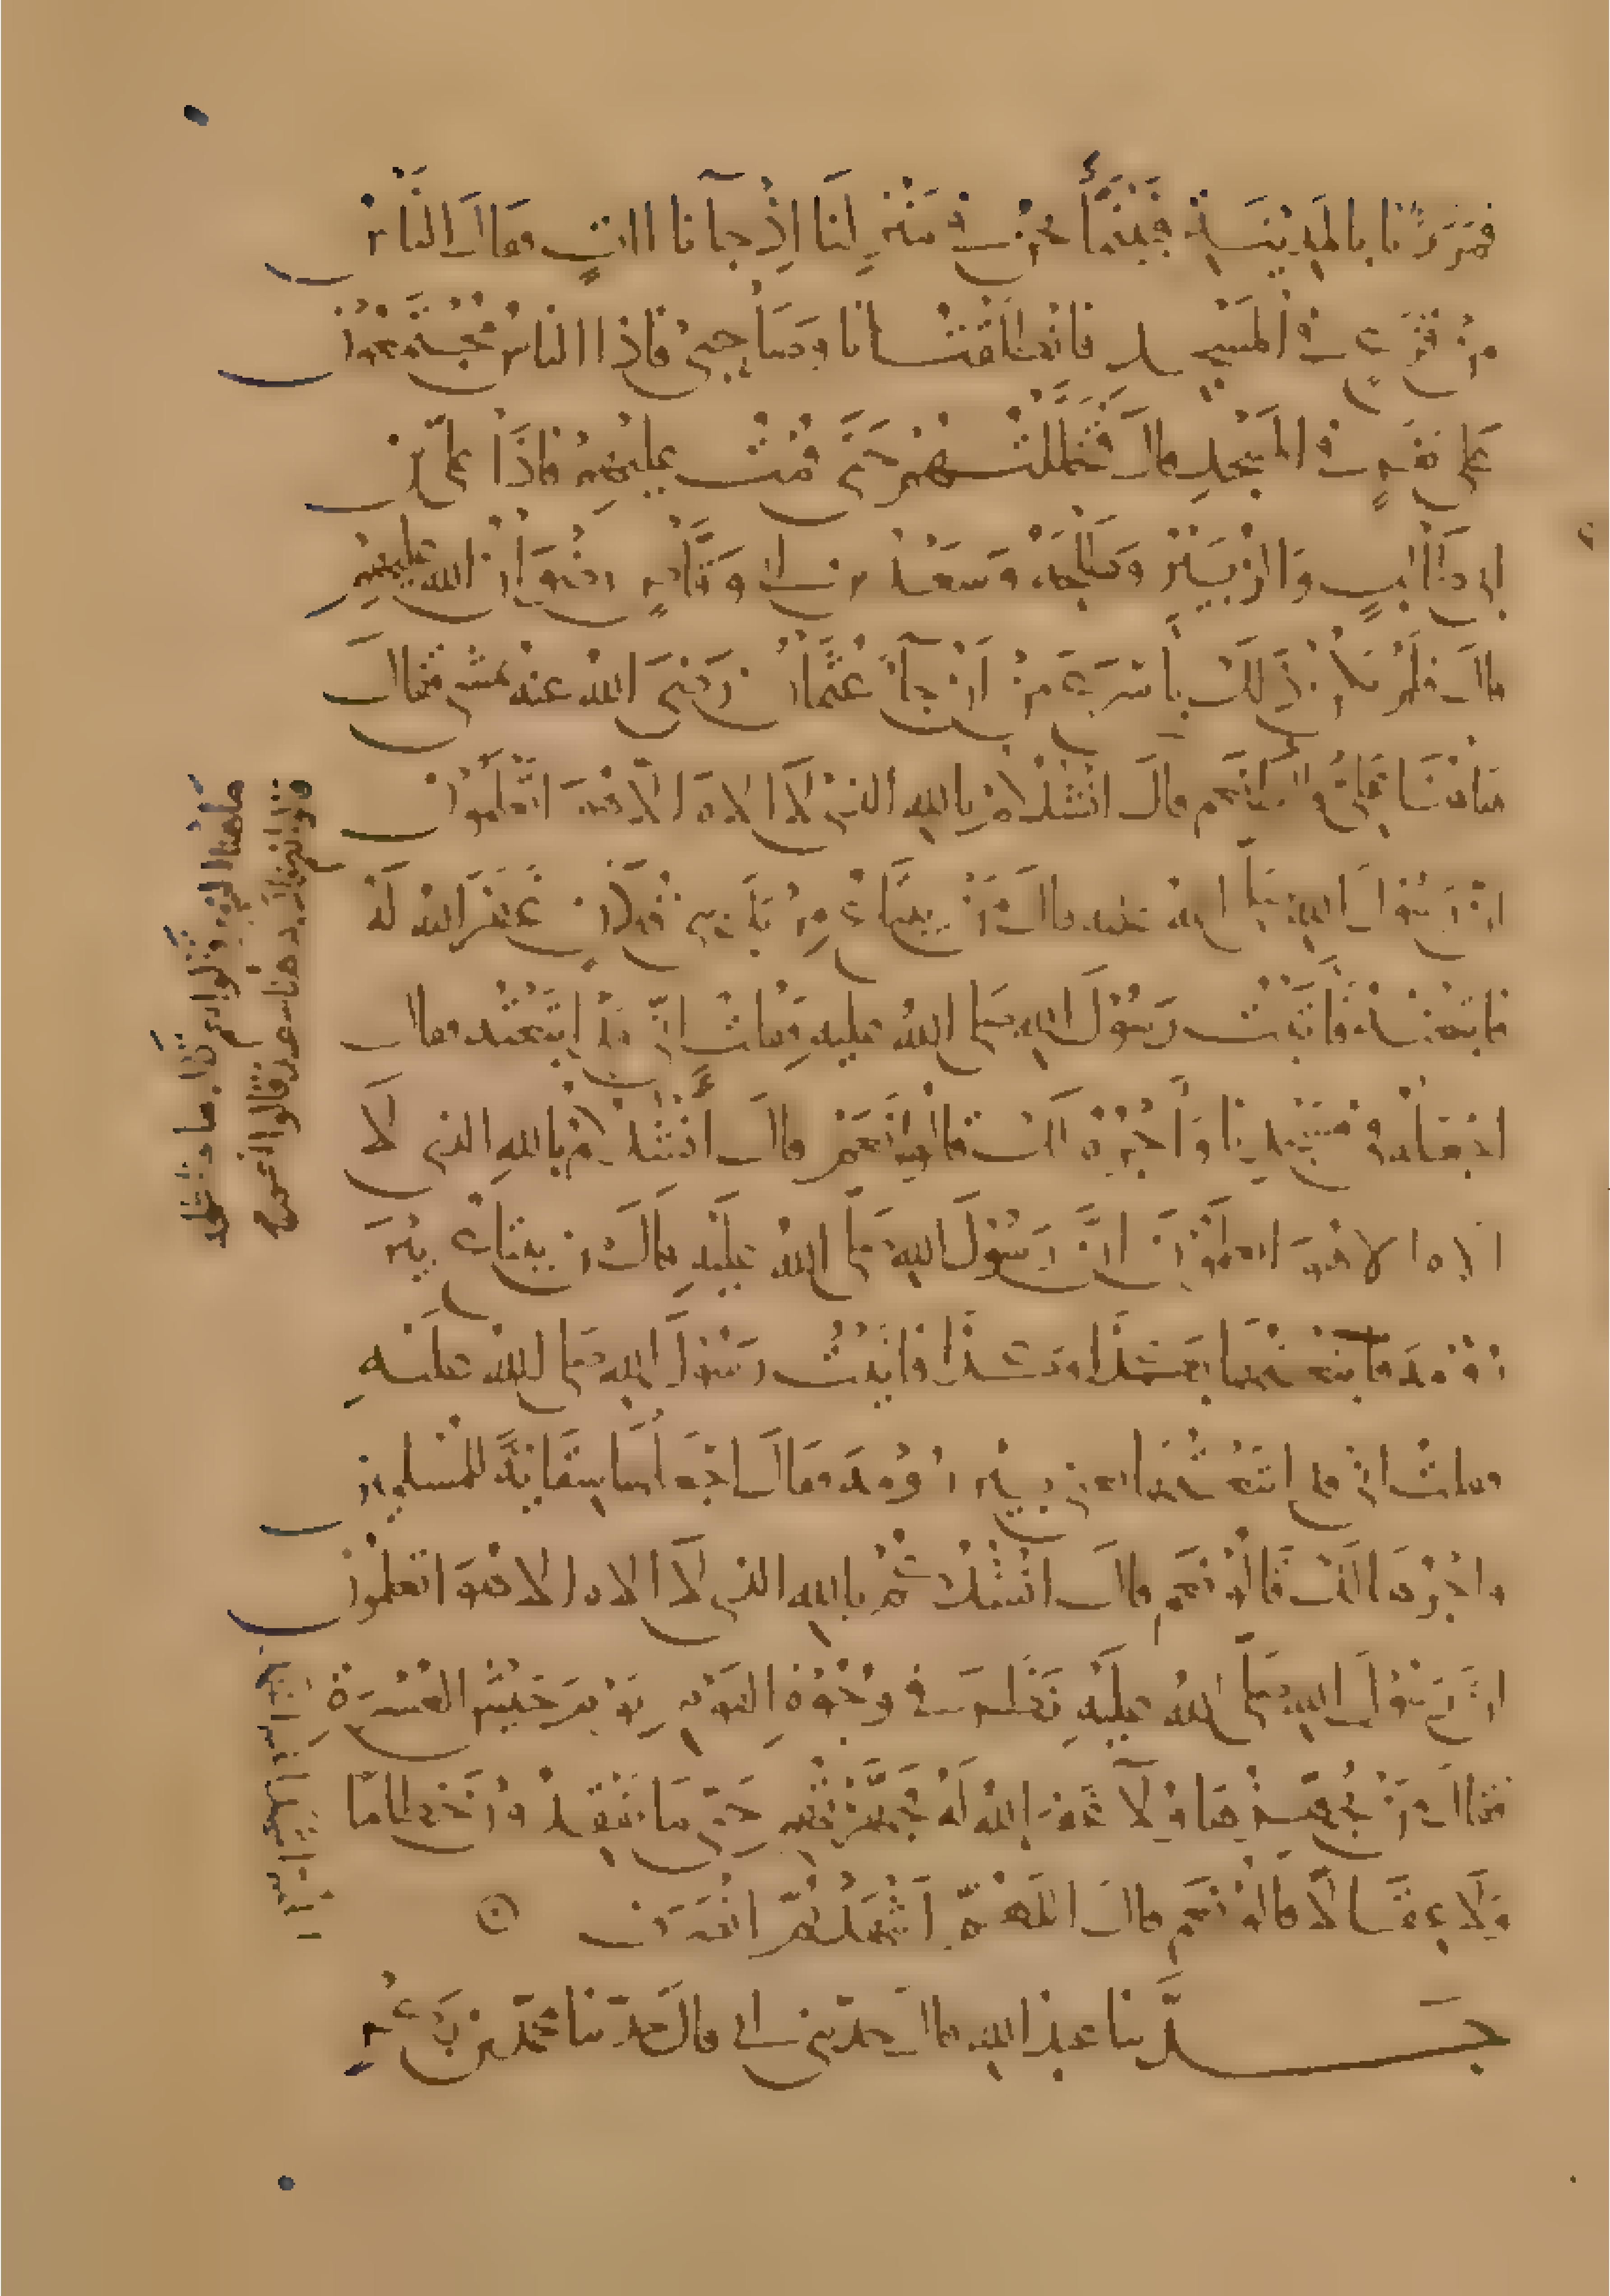 فمررنا بالمدينة فبينما نحن في منزلنا إذ جآنا ات فقال الناس
من فزع في المسجد فانطلقت انا وصاحبي فاذا الناس مجتمعون
على نفر في المسجد قال فتخللتهم حتى قمت عليهم فاذا علي بن
ابي طالب والزبير وطلحة وسعد بن ابي وقاص رضوان الله عليهم
قال فلم يكن ذلك بأسرع من ان جآ عثمان رضي الله عنه يمشي فقال
قالوا نعم قال انشدكم بالله الذي لا الاه الا هو اتعلمون
ان رسول الله صلى الله عليه قال من يبتاع مربد بني فلان غفر الله له
فابتعته فأتيت رسول الله صلى الله عليه فقلت اني قد ابتعته فقال
اجعله في مسجدنا وأجره لك قالوا نعم قال أنشدكم بالله الذي لا
الاه الا هو اتعلمون ان رسول الله صلى الله عليه قال من يبتاع بير
رومة فابتعتها بكذا وكذا فاتيت رسول الله صلى الله عليه
فقلت اني قد ابتعتها يعني بير رومة فقال اجعلها سقاية للمسلمين
واجرها لك قالوا نعم قال انشدكم بالله الذي لا الاه الا هو اتعلمون
ان رسول الله صلى الله عليه نظر في وجوه القوم يوم جيش العسرة
فقال من يجهز هاولآ غفر الله له فجهزتهم حتى ما يفقدون خطاما
ولا عقالا قالوا نعم قال اللهم اشهد اللهم اشهد ثم انصرف
حدثنا عبد الله قال حدثني ابي قال حدثنا محمد بن بكر